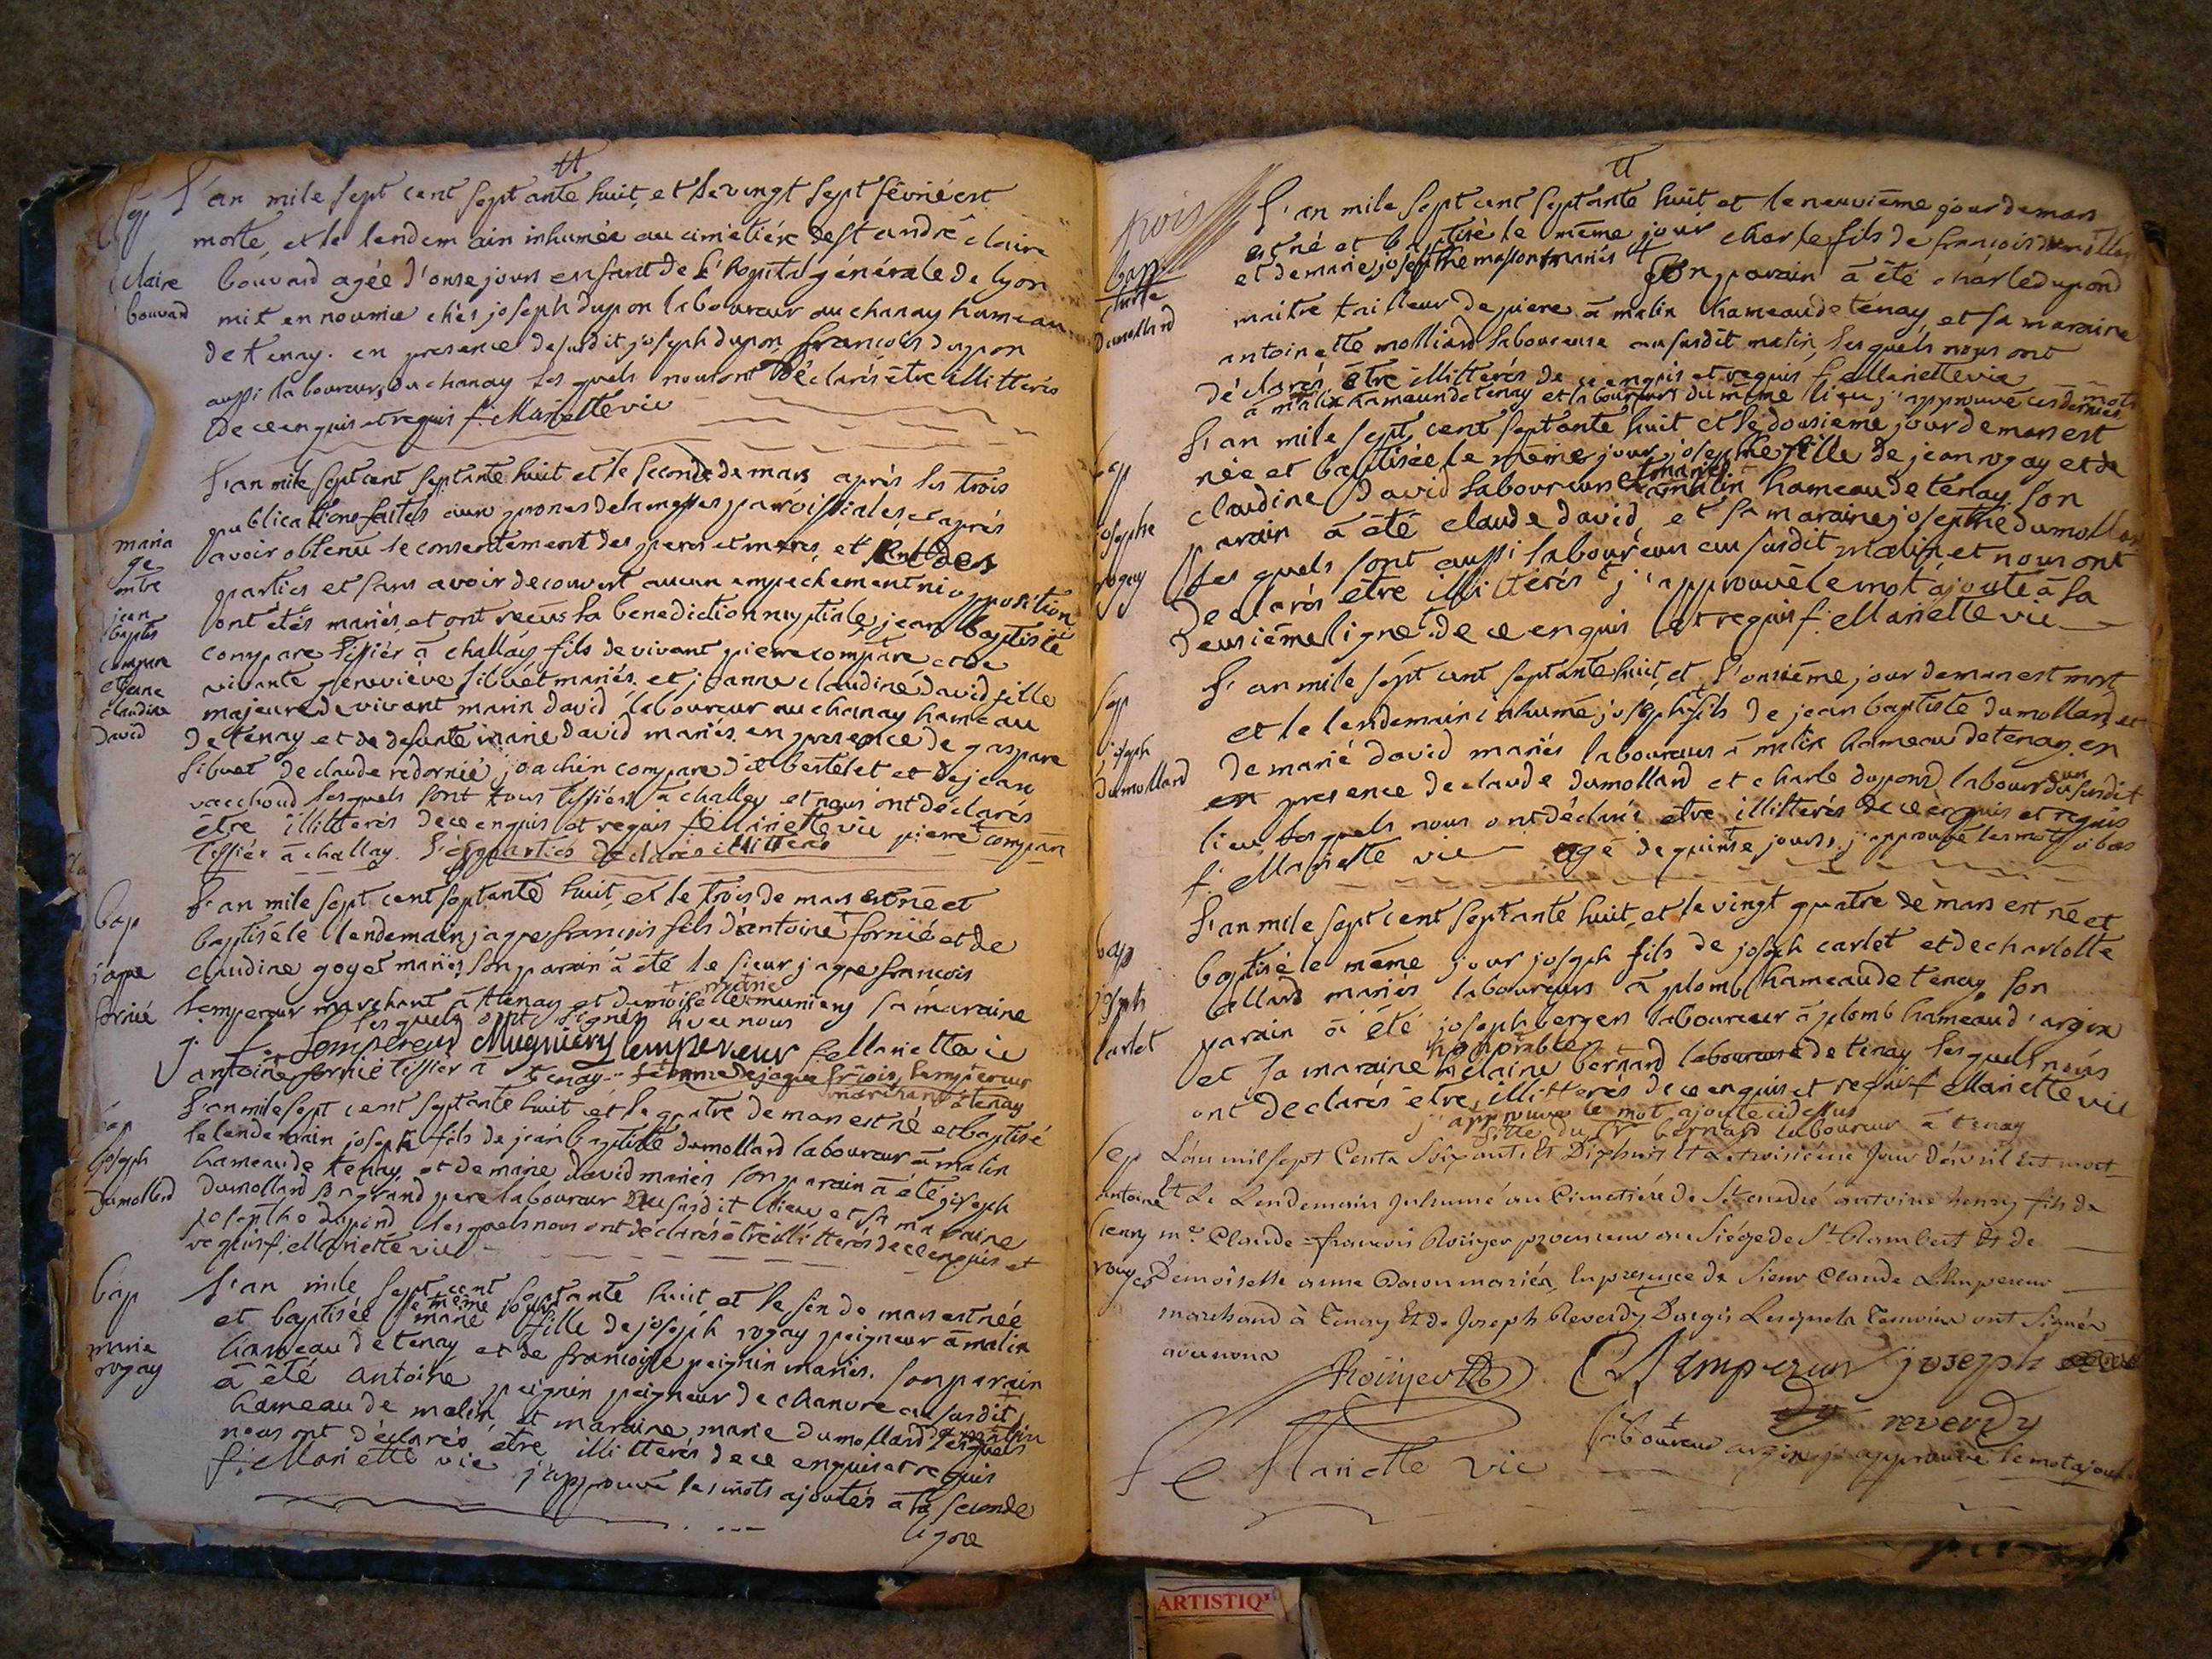 Sep
L'an mile sept cent septante huit, et le vingt sept février est
morte, et le lendemain inhumée au cimetière de st andré claire
claire
bouvard
bouvard agée d'onse jours enfant de l'hopital générale de lyon
mit en nourrice chés joseph dupon laboureur au chanay hameau
de tenay. en presence desusdit joseph dupon françois dupon
aussi laboureur, du chanay les quels nous ont déclarés être illitterés
de ce enquis et requis f. Mariette vic
maria
ge
entre
jean
baptis
compare
et jeane
claudine
david
L'an mile sept cent septante huit et le seconde de mars après les trois
publications faites aux prones de la messes paroissiales et après
avoir obtenu le consentement des peres et meres, et des
parties et sans avoir decouvert aucun empechement ni opposition
ont étés mariés, et ont reçus la benediction nuptiale, jean baptiste
compare tissiér à challay fils de vivant pierre compare et de
vivante geneviève sibuét mariés. et jeanne claudine david fille
majeure de vivant marin david laboureur au chanay hameau
de tenay et de defunte marie david mariés. en presence de gaspare
sibuet de claude redornié, joachin compare dit bertelet et de jean
vacchoud lesquels sont tous tissiérs à challey et nous ont déclarés
être illitterés de ce enquis et requis f. Mariette vic pierre compare
tissiér à challay. les parties déclarés illitterés
bap
jaque
fornié
L'an mile sept cent septante huit, et le trois de mars est né et
baptisé le lendemain jaque francois fils d'antoine fornié et de
claudine goyet mariés, son parain à été le sieur jaque francois
Lempereur marchant à tenay et demoiselle marie muniery sa maraine
lesquels ont signés avec nous
j. f. Lempereur Mugniery Lempereur f. Mariette vic
antoine fornié tissier à tenay femme de jaque frçois, Lempereur
marchant à tenay
bap
joseph
dumollard
L'an mile sept cent septante huit et le quatre de mars est né et baptisé
le lendemain joseph fils de jean baptiste dumollard laboureur à malin
hameau de tenay, et de marie david mariés son parain à été joseph
dumollard son grand pere laboureur au susdit lieu et sa maraine
josephe dupond lesquels nous ont déclarés être illitterés de ce enquis et
requis f. Mariette vic
bap
marie
rogay
L'an mile sept cent septante huit et le six de mars est née
et baptisée le même jour marie fille de joseph rogay peigneur à malin
hameau de tenay et de françoise peignin mariés. son parain
à été antoine peignin peigneur de chanvre au susdit
hameau de malin, et maraine marie dumollard de malin lesquels
nous ont déclarés être illitterés de ce enquis et requis
f. Mariette vic j'approuve les mots ajoutés à la seconde
ligne
trois
bap
charle
dumollard
L'an mile sept cent septante huit et le neuvième jour de mars
est né et baptisé le même jour charle fils de françois dumollard
et de marie josephe masson mariés son parain à été charle dupond
maitre tailleur de piere à malin hameau de tenay, et sa maraine
antoinette molliard laboureuse au susdit malin, lesquels nous ont
déclarés être illitterés de ce enquis et requis f. Mariette vic
à malin hameau de tenay et laboureurs du même lieu j'approuve ces derniers mots
bap
josephe
rogay
L'an mile sept cent septante huit et le dousième jour de mars est
née et baptisée le même jour, josephe fille de jean rogay et de
claudine david laboureurs et mariés à malin hameau de tenay, son
parain à été claude david, et sa maraine josephe dumollard
les quels sont aussi laboureurs au susdit malin, et nous ont
declarés être illitterés j'approuve le mot ajouté à la
deusième ligne de ce enquis et requis f. Mariette vic
sep
joseph
dumollard
L'an mile sept cent septante huit, et l'onsième jour de mars est mort
et le lendemain inhumé, joseph fils de jean baptiste dumollard, et
de marie david mariés laboureurs à malin hameau de tenay. en
presence de claude dumollard et charle dupond laboureurs du susdit
lieu lesquels nous ont déclarés etre illitterés de ce enquis et requis
f. Mariette vic agé de quinse jours. j'approuve les mots
bap
joseph
carlet
L'an mile sept cent septante huit, et le vingt quatre de mars est né et
baptisé le même jour joseph fils de joseph carlet et de charlotte
allard mariés laboureurs à plomb hameau de tenay son
parain à été joseph bergers laboureur à plomb hameau d'argix
et sa maraine honorable claine bernard laboureuse de tenay lesquels nous
ont declarés être illitterés de ce enquis et requis f. Mariette vic
j'approuve le mot ajouté cidessus
fille du Sr bernard laboureur à tenay
sep
antoine
henry
rouyer
L'an mil sept Cents Soixante et Dixhuit et Le troisième Jour d'avril Est mort
Et Le Lendemain Inhumé au Cimetière de St andré antoine henry fils de
me Claude = françois Roüyer procureur au Siège de St Rambert Et de
Demoiselle anne mariés, En presence de Sieur Claude L'Empereur
marchand à Tenay Et de Joseph Reverdy D'argis Lesquels Temoins ont Signés
avec nous
Roüyer C Lempereur joseph
reverdy
f e Mariette vic laboureur argix j'approuve le mot ajouté
ARTISTIQ